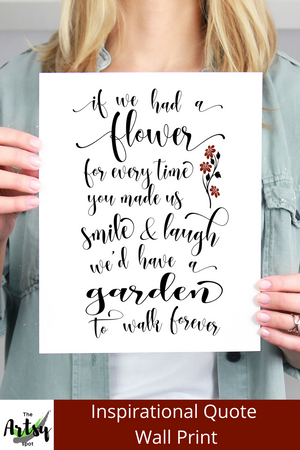 if we had a
flower
for every time
you made us
smile & laugh
we'd have a
garden
to walk forever
The
Artsy
Spot
Inspirational Quote
Wall Print